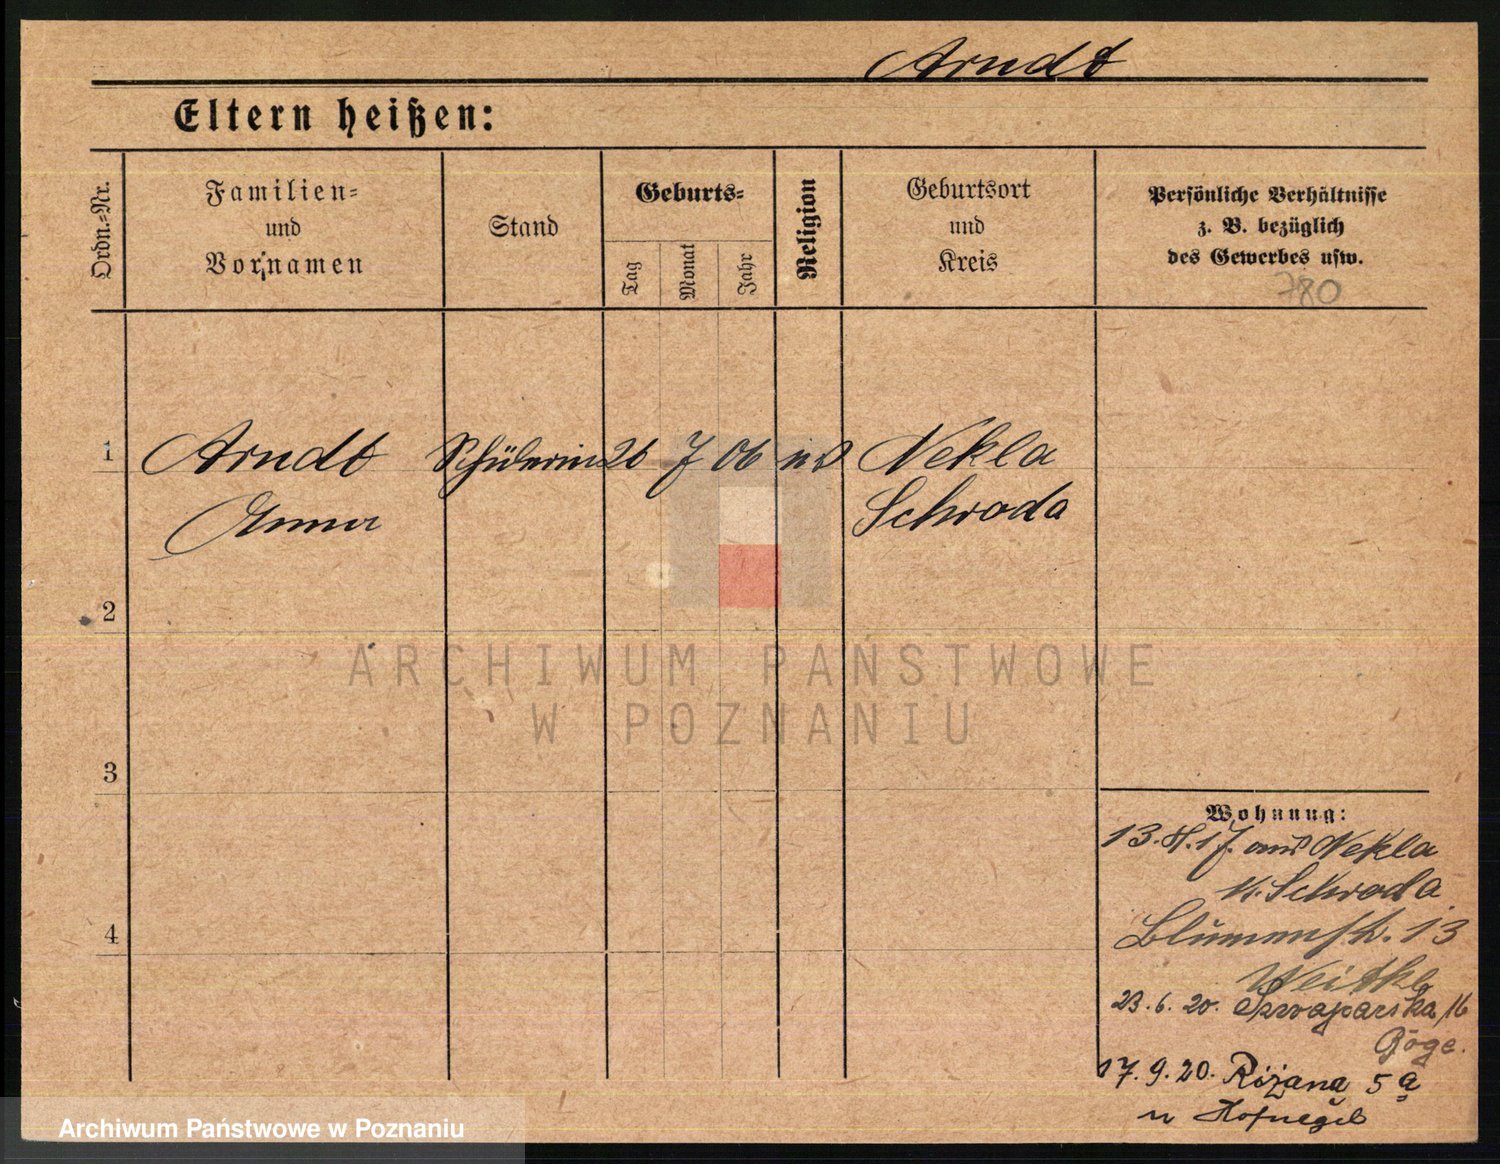 Arndt
Eltern heißen:
Ordn.=Nr.
Familien=
und
Vornamen
Stand
Geburts=
Tag
Monat
Jahr
Religion
Geburtsort
und
Kreis
Persönliche Verhältnisse
z. B. bezüglich
des Gewerbes usw.
780
1 Arndt Schülerin 26 7 06 Nekla
Anna Schroda
2
3
4
Wohnung:
13.4.17. aus Nekla
K. Schroda
Blumenstr. 13
23.6.20. 16
Böge.
17.9.20. Różana 5a
u
ARCHIWUM PAŃSTWOWE
W POZNANIU
Archiwum Państwowe w Poznaniu